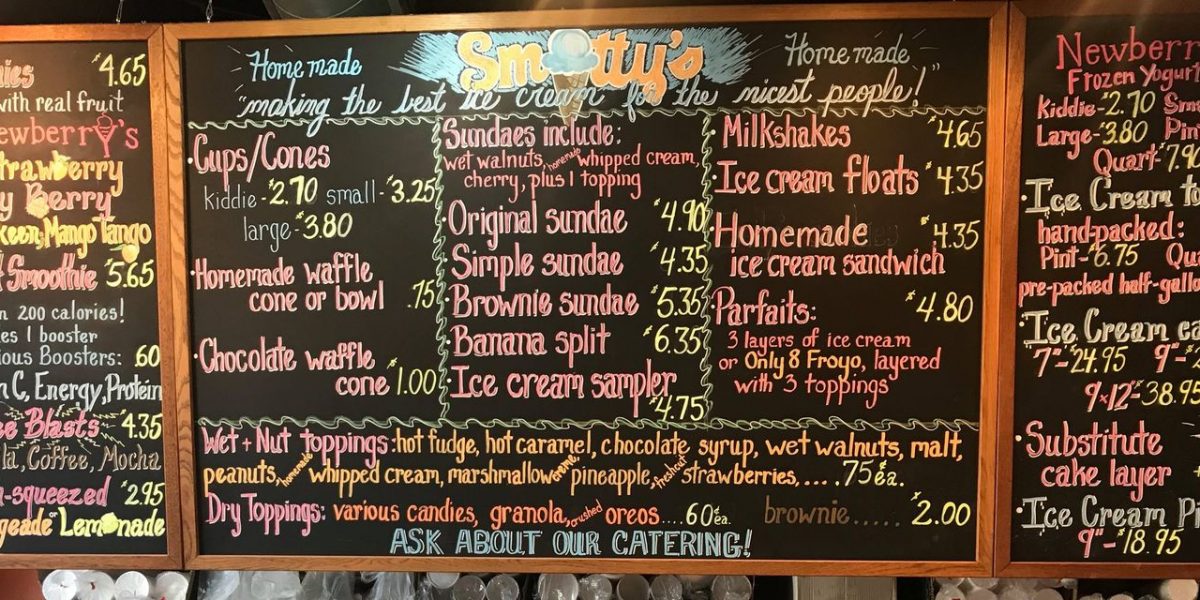 4.65
with real fruit
ewberry's
trawberry
y Berry
keen, Mango Tango
Smoothie 5.65
200 calories!
1 booster
ious Boosters: 60
C, Energy, Protein
Blasts $4.35
Coffee, Mocha
-squeezed $2.95
geade Lemonade
Home made Smotty's Home made
"making the best ice cream for the nicest people!"
·Cups/Cones
kiddie - $2.70 small - $3.25
large - $3.80
·Homemade waffle
cone or bowl .75
·Chocolate waffle
cone $1.00
Sundaes include:
wet walnuts, homemade whipped cream,
cherry, plus 1 topping
·Original sundae $4.90
·Simple sundae $4.35
·Brownie sundae $5.35
·Banana split $6.35
·Ice cream sampler
$4.75
·Milkshakes $4.65
·Ice cream floats $4.35
·Homemade $4.35
ice cream sandwich
·Parfaits: $4.80
3 layers of ice cream
or Only 8 Froyo, layered
with 3 toppings
Wet + Nut toppings: hot fudge, hot caramel, chocolate syrup, wet walnuts, malt,
peanuts, homemade whipped cream, marshmallow creme, pineapple, fresh cut strawberries, .... .75¢ ea.
Dry Toppings: various candies, granola, crushed oreos....60¢ea. brownie..... $2.00
ASK ABOUT OUR CATERING!
Newberry
Frozen Yogurt
Kiddie - 2.70
Large - 3.80
Quart - $7.90
·Ice Cream
hand-packed:
Pint - $6.75
pre-packed half-gallo
·Ice Cream
7" - $24.95 9" -
9x12 - 38.95
·Substitute
cake layer
·Ice Cream Pi
9" - $18.95